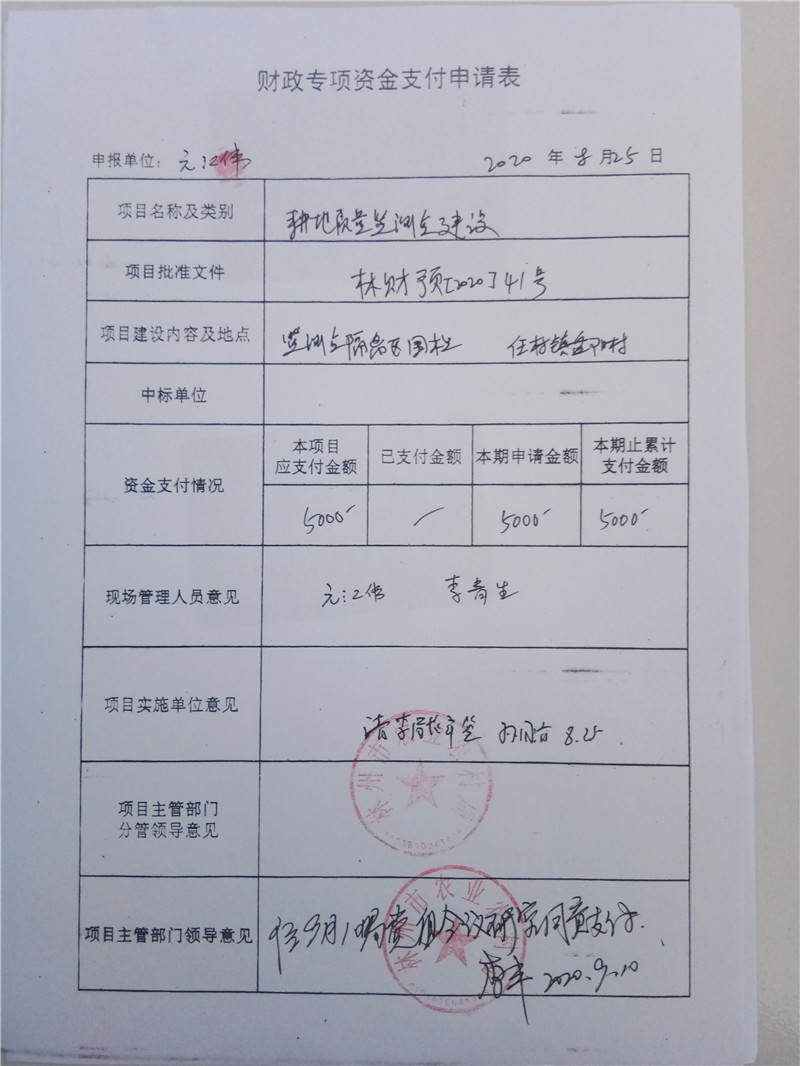 财政专项资金支付申请表
申报单位：元江伟 2020 年 8 月 25 日
项目名称及类别 耕地质量监测点建设
项目批准文件 林财预[2020]41号
项目建设内容及地点 监测点隔离区围栏 任村镇盘阳村
中标单位
资金支付情况
本项目应支付金额 已支付金额 本期申请金额 本期止累计支付金额
5000 — 5000 5000
现场管理人员意见 元江伟 李青生
项目实施单位意见 请李局长审签 8.25
项目主管部门
分管领导意见
林州市农业农村局
项目主管部门领导意见 经9月1日局党组会议研究同意支付.
2020.9.10
林州市农业农村局